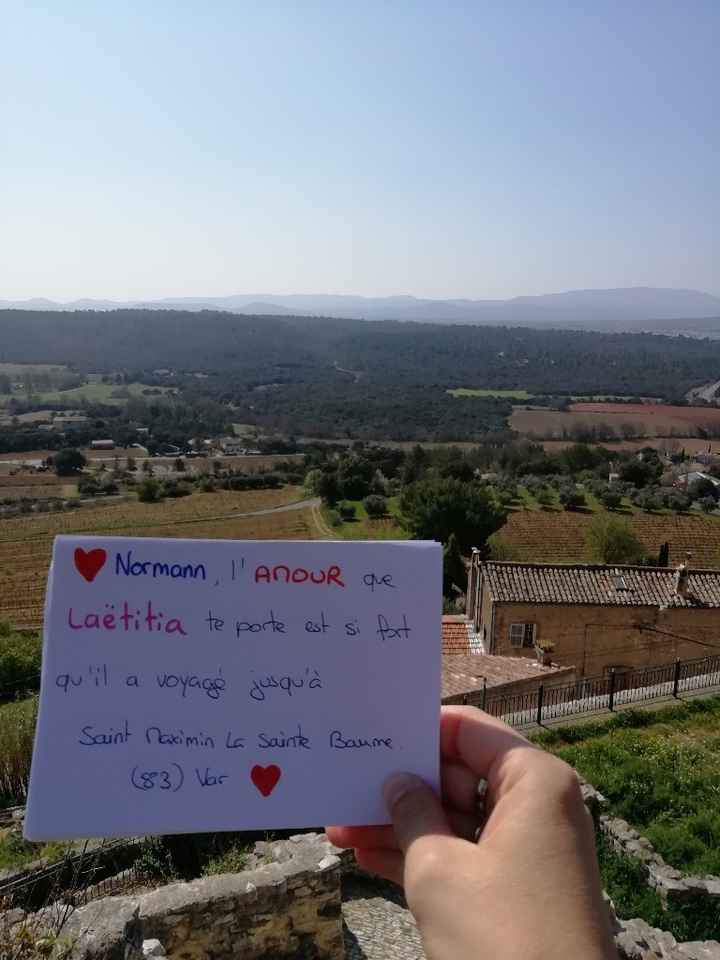 Normann, l'AMOUR que
Laëtitia te porte est si fort
qu'il a voyagé jusqu'à
Saint Maximin La Sainte Baume.
(83) Var